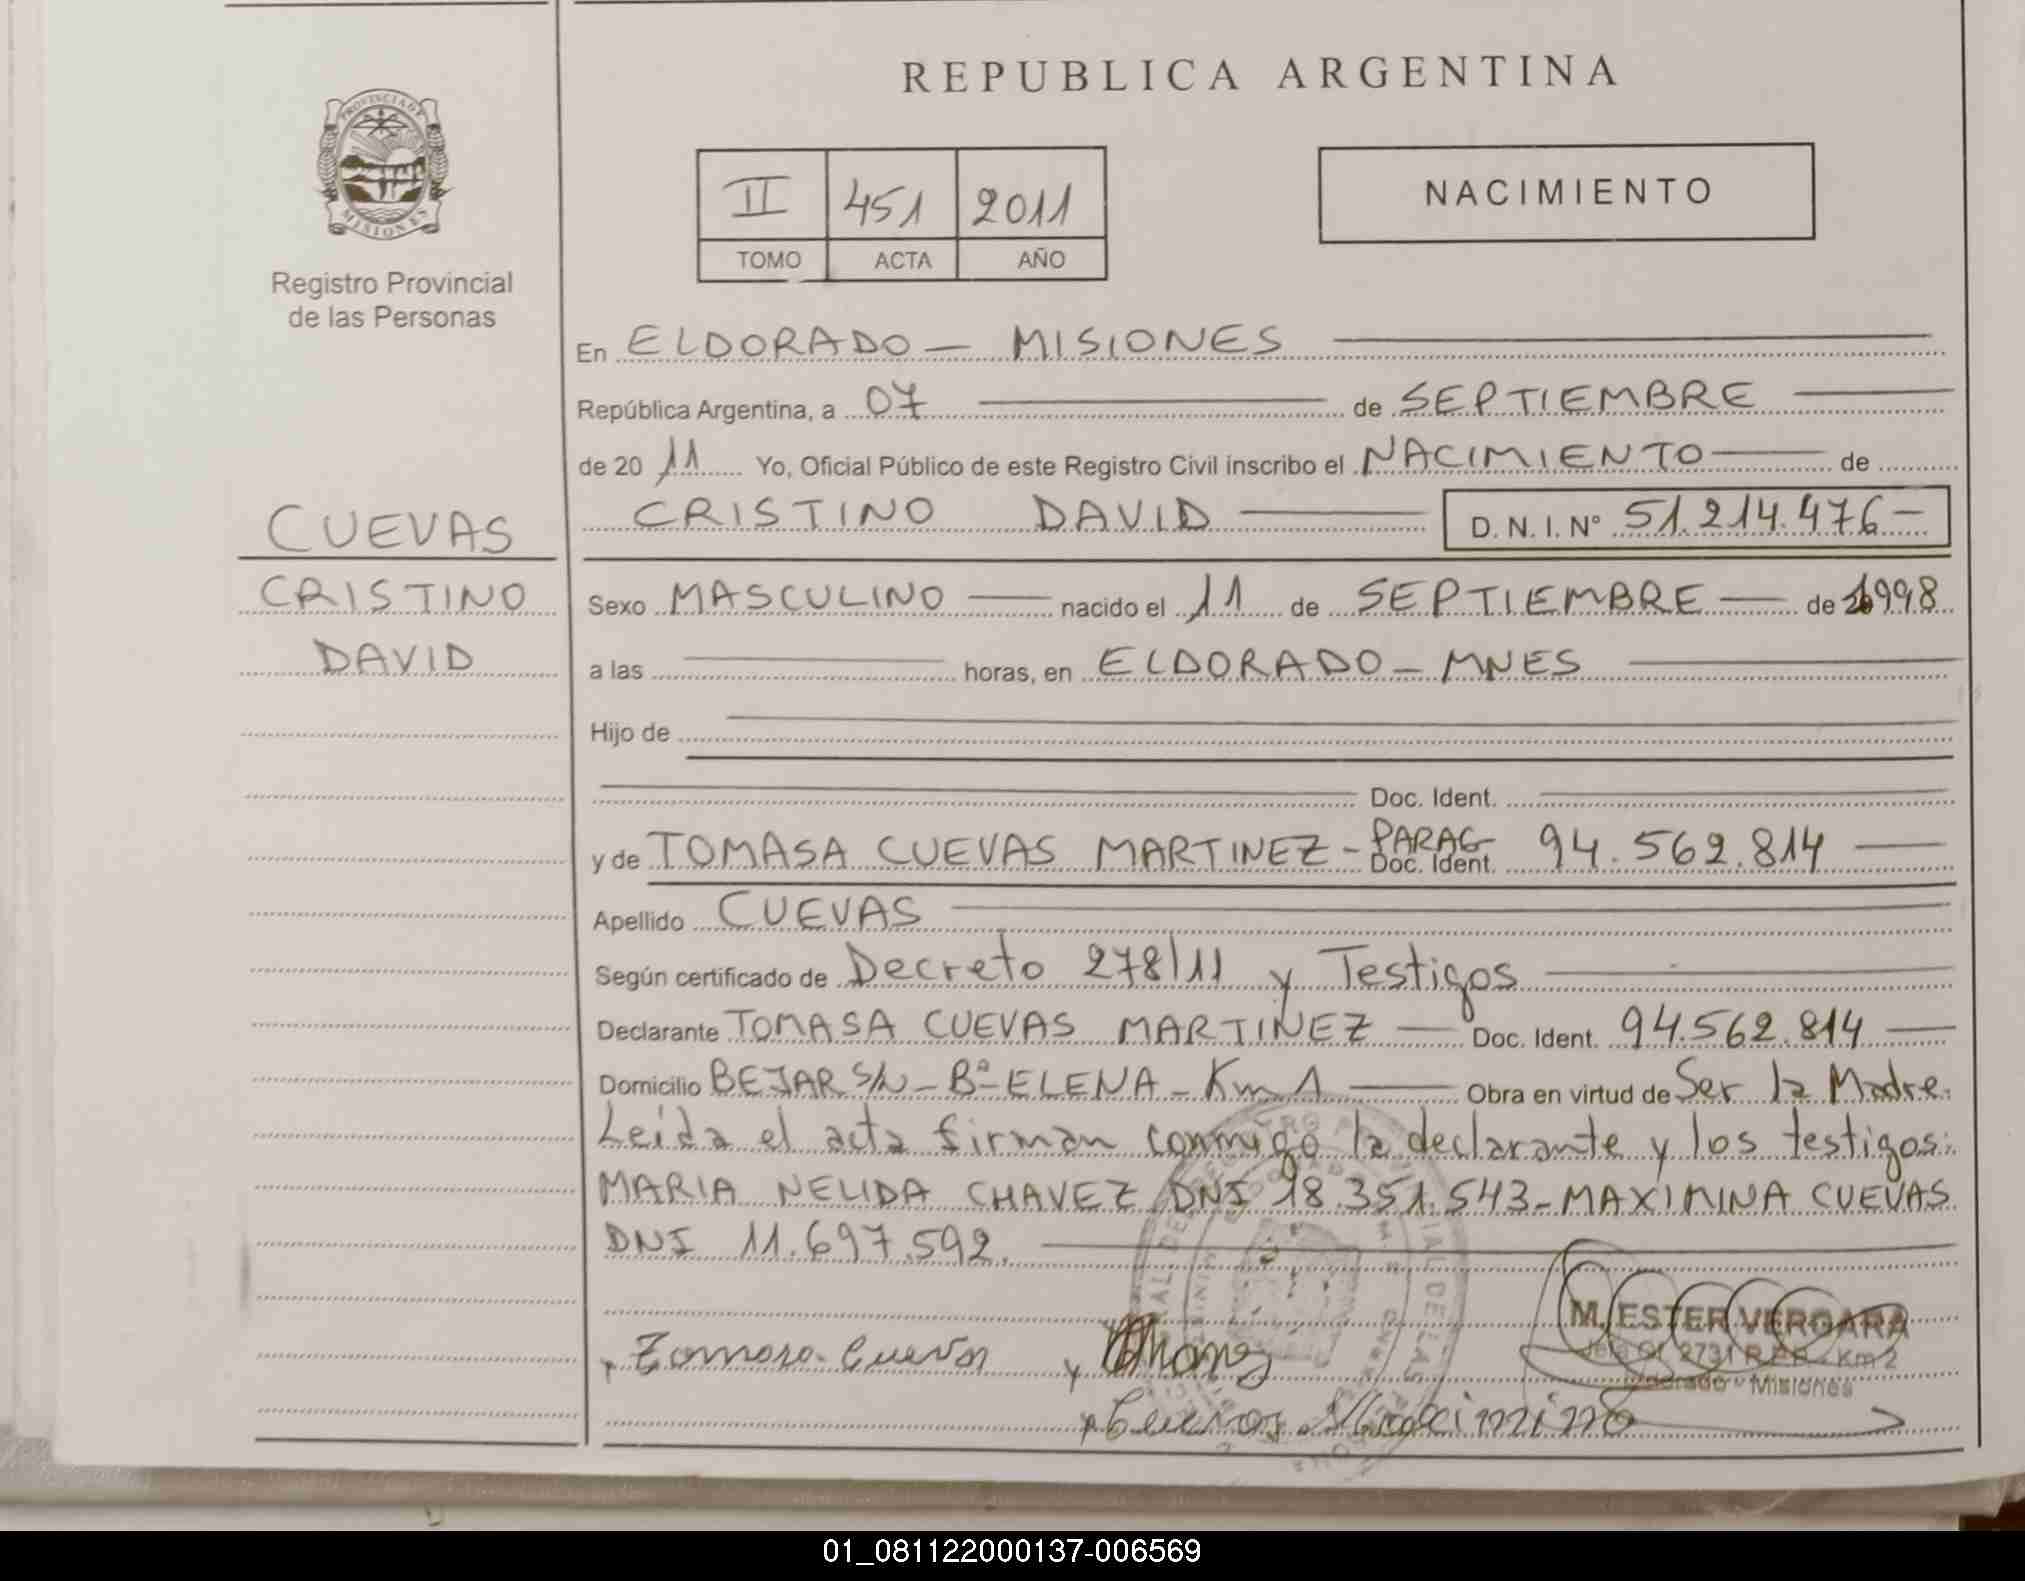 REPUBLICA ARGENTINA
PROVINCIA DE
MISIONES
Registro Provincial
de las Personas
II 451 2011
TOMO ACTA AÑO
NACIMIENTO
En ELDORADO - MISIONES
República Argentina, a 07 de SEPTIEMBRE
de 20 11 Yo, Oficial Público de este Registro Civil inscribo el NACIMIENTO de
CRISTINO DAVID D. N. I. N° 51.214.476-
CUEVAS
CRISTINO
DAVID
Sexo MASCULINO nacido el 11 de SEPTIEMBRE de 1998
a las horas, en ELDORADO - MNES
Hijo de
Doc. Ident.
y de TOMASA CUEVAS MARTINEZ - PARAG Doc. Ident. 94.562.814
Apellido CUEVAS
Según certificado de Decreto 278/11 y Testigos
Declarante TOMASA CUEVAS MARTINEZ Doc. Ident. 94.562.814
Domicilio BEJAR S/N - Bº ELENA - Km 1 Obra en virtud de Ser la Madre.
Leída el acta firman conmigo la declarante y los testigos:
MARIA NELIDA CHAVEZ DNI 18.351.543 - MAXIMINA CUEVAS
DNI 11.697.592.
M. ESTER VERGARA
Jefa Of. 2731 R.P.P. - Km 2
Eldorado - Misiones
Tomasa Cuevas
Cuevas Maximina
01_081122000137-006569